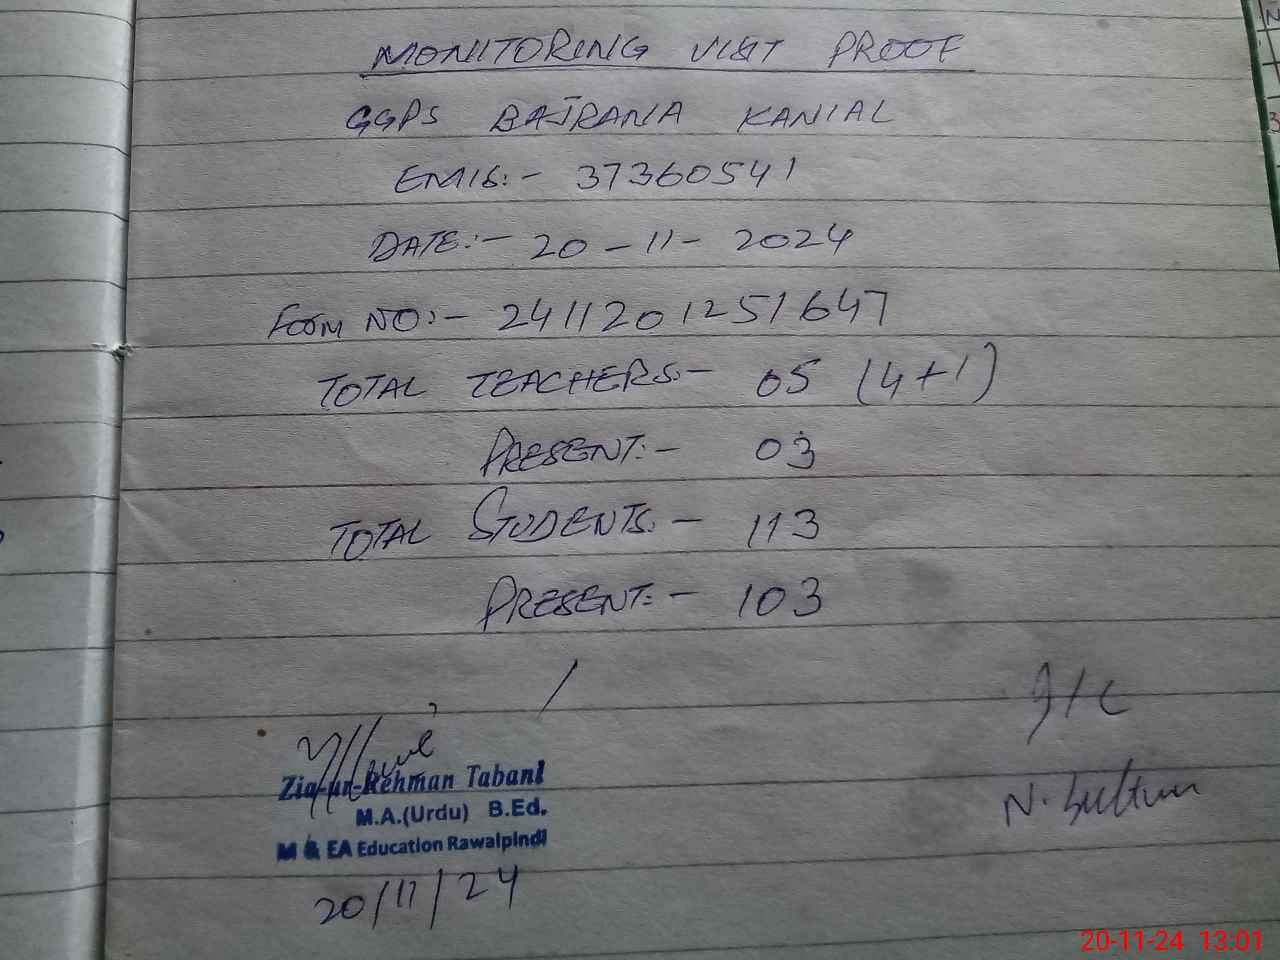 MONITORING VISIT PROOF
GGPS BAJRANA KANIAL
EMIS:- 37360541
DATE:- 20-11-2024
FORM NO:- 241120125 1647
TOTAL TEACHERS:- 05 (4+1)
PRESENT:- 03
TOTAL STUDENTS:- 113
PRESENT:- 103
I/C
Zia-ur-Rehman Tabani
M.A.(Urdu) B.Ed.
M & EA Education Rawalpindi
N. Sultan
20/11/24
20-11-24 13:01